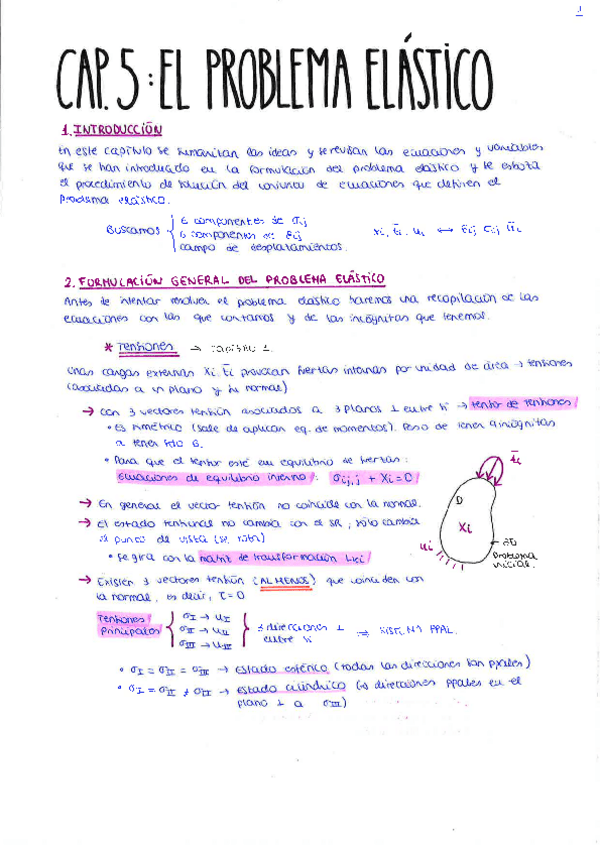 1
CAP. 5: EL PROBLEMA ELÁSTICO
1. INTRODUCCIÓN
En este capítulo se las ideas y se revisan las ecuaciones y variables
que se han introducido en la formulación del problema elástico y se
el procedimiento de solución del conjunto de ecuaciones que definen el
Problema elástico.
Buscamos { 6 componentes de σij
6 componentes de εij
campo de desplazamientos.
Xi, t̄i, ui ↔ εij, σij, ūi
2. FORMULACIÓN GENERAL DEL PROBLEMA ELÁSTICO
Antes de intentar resolver el problema elástico haremos una recopilación de las
ecuaciones con las que contamos y de las incógnitas que tenemos.
* Tensiones → capítulo 1.
Unas cargas externas Xi, t̄i provocan fuerzas internas por unidad de área → tensiones
(asociadas a un plano y su normal)
→ Con 3 vectores tensión asociados a 3 planos ⊥ entre sí → tensor de tensiones
• Es simétrico (sale de aplicar eq. de momentos). Paso de tener 9 incógnitas
a tener solo 6.
• Para que el tensor esté en equilibrio de fuerzas:
Ecuaciones de equilibrio interno: σij,j + Xi = 0
→ En general el vector tensión no coincide con la normal.
→ El estado tensional no cambia con el SR, sólo cambia
el punto de vista
• Se gira con la matriz de transformación
→ Existen 3 vectores tensión (AL MENOS) que coinciden con
la normal, es decir, τ = 0
t̄i
D
Xi
ui
∂D
Problema
inicial.
Tensiones
principales { σI → uI
σII → uII
σIII → uIII } 3 direcciones ⊥
entre sí ⇒ SIST. PPAL.
• σI = σII = σIII → estado esférico (todas las direcciones son ppales)
• σI = σII ≠ σIII → estado cilíndrico (∞ direcciones ppales en el
plano ⊥ a σIII)